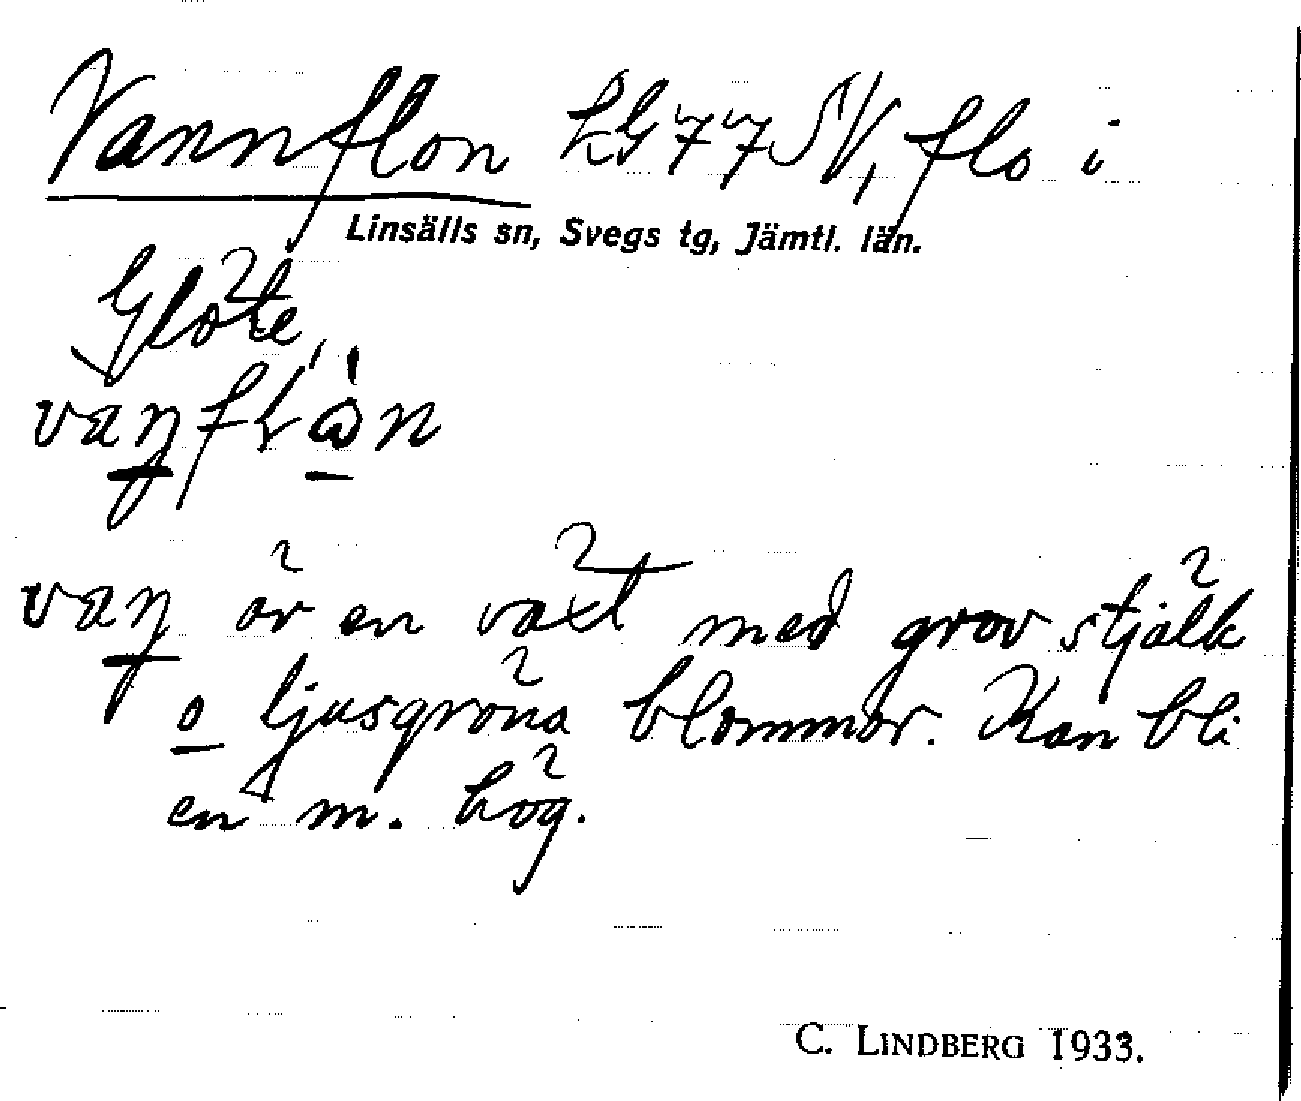 Vannflon LG77SV, flo i
Linsälls sn, Svegs tg, Jämtl. län.
Glöte,
är en växt med grov stjälk
o ljusgröna blommor. Kan bli
en m. hög.
C. LINDBERG 1933.